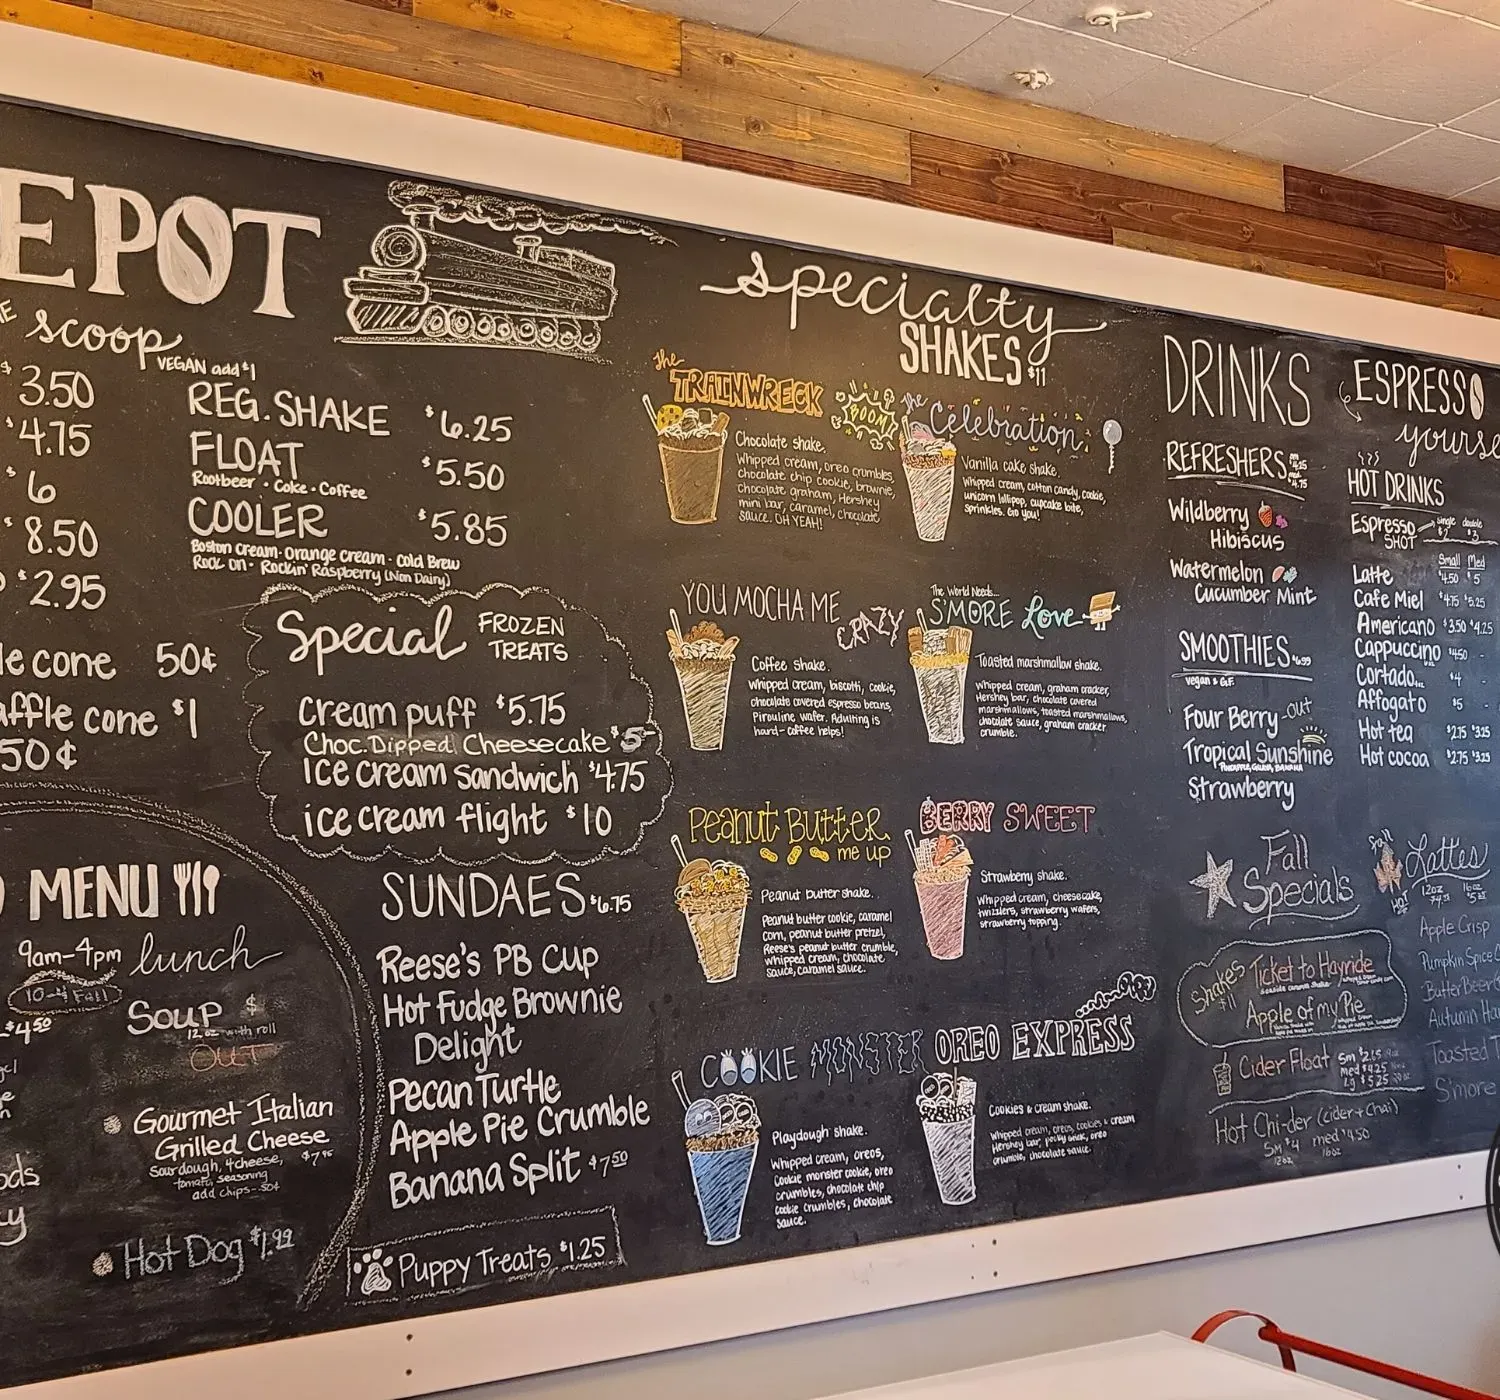 EPOT
scoop
VEGAN add $1
$3.50
$4.75
$6
$8.50
$2.95
le cone 50¢
affle cone $1
50¢
REG. SHAKE $6.25
FLOAT $5.50
Rootbeer · Coke · Coffee
COOLER $5.85
Boston cream · Orange cream · Cold Brew
Rock on · Rockin' Raspberry (Non Dairy)
Special FROZEN
TREATS
Cream puff $5.75
Choc. Dipped Cheesecake $5-
Ice cream sandwich $4.75
ice cream flight $10
MENU
9am-4pm lunch
10-4 Fall
$4.50
Soup $
12 oz with roll
OUT
Gourmet Italian
Grilled Cheese
Sourdough, 4 cheese,
tomato, seasoning
add chips-.50¢
Hot Dog $1.99
SUNDAES $6.75
Reese's PB Cup
Hot Fudge Brownie
Delight
Pecan Turtle
Apple Pie Crumble
Banana Split $7.50
Puppy Treats $1.25
specialty
SHAKES $11
The
TRAINWRECK
BOOM
Chocolate shake.
Whipped cream, oreo crumbles,
chocolate chip cookie, brownie,
chocolate graham, Hershey
mini bar, caramel, chocolate
sauce. OH YEAH!
The
Celebration
Vanilla cake shake.
Whipped cream, cotton candy, cookie,
unicorn lollipop, cupcake bite,
sprinkles. Go you!
YOU MOCHA ME
CRAZY
Coffee shake.
Whipped cream, biscotti, cookie,
chocolate covered espresso beans,
Pirouline wafer. Adulting is
hard-coffee helps!
The World Needs...
S'MORE Love
Toasted marshmallow shake.
Whipped cream, graham cracker,
Hershey bar, chocolate covered
marshmallows, toasted marshmallows,
chocolate sauce, graham cracker
crumble.
Peanut Butter
me up
Peanut butter shake.
Peanut butter cookie, caramel
corn, peanut butter pretzel,
Reese's peanut butter crumble,
whipped cream, chocolate
sauce, caramel sauce.
BERRY SWEET
Strawberry shake.
Whipped cream, cheesecake,
twizzlers, strawberry wafers,
strawberry topping.
COOKIE MONSTER
Playdough shake.
Whipped cream, oreos,
Cookie monster cookie, oreo
crumbles, chocolate chip
cookie crumbles, chocolate
sauce.
OREO EXPRESS
Cookies & cream shake.
Whipped cream, oreos, cookies & cream
Hershey bar, pocky stick, oreo
crumble, chocolate sauce.
DRINKS
REFRESHERS
Wildberry
Hibiscus
Watermelon
Cucumber Mint
SMOOTHIES $6.99
vegan & G.F.
Four Berry -OUT
Tropical Sunshine
Strawberry
Fall
Specials
Shakes $11
Ticket to Hayride
Apple of my Pie
Cider Float Sm $2.15
med $4.25
Lg $5.25
Hot Chi-der (cider + chai)
Sm $4 med $4.50
12oz 16oz
ESPRESSO
yourse
HOT DRINKS
Espresso single double
SHOT $2 $3
Small Med
Latte $4.50 $5
Cafe Miel $4.75 $5.25
Americano $3.50 $4.25
Cappuccino $4.50 -
Cortado $4 -
Affogato $5 -
Hot tea $2.75 $3.25
Hot cocoa $2.75 $3.25
Lattes
12oz 16oz
Apple Crisp
Pumpkin Spice
Butter Beer
Autumn Ha
Toasted
S'more